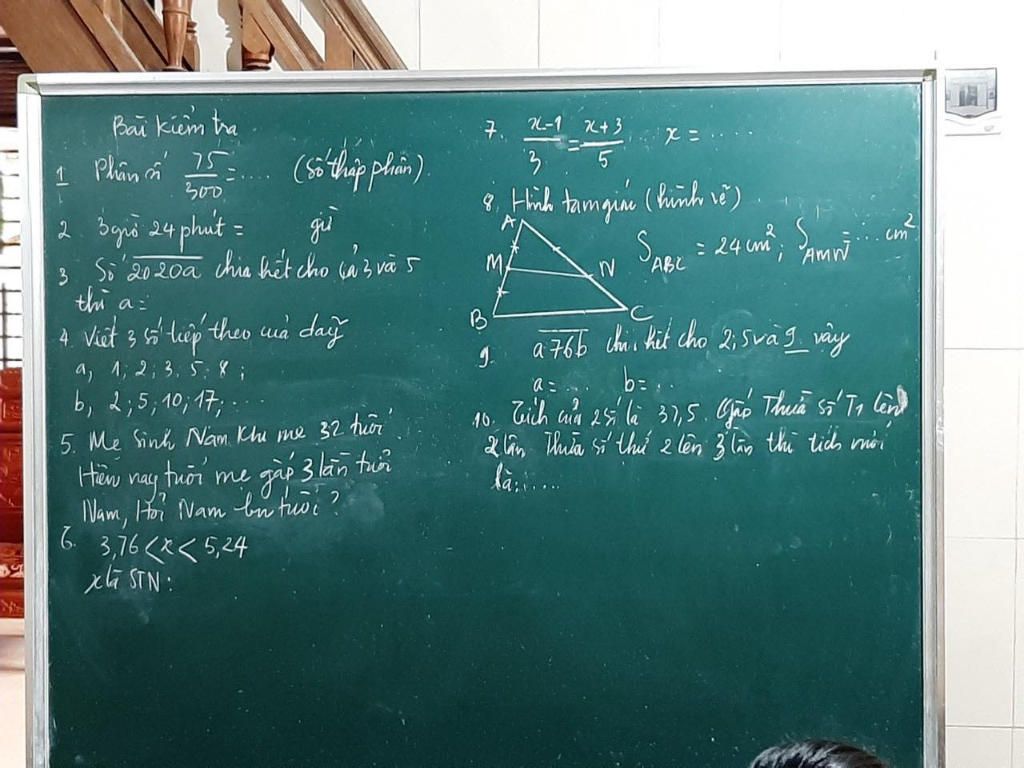 Bài kiểm tra
1 Phân số 75/300 = .... (số thập phân)
2 3 giờ 24 phút = giờ
3 Số 2020a chia hết cho cả 3 và 5
thì a =
4. Viết 3 số tiếp theo của dãy
a, 1; 2; 3; 5; 8;
b, 2; 5; 10; 17; ...
5. Mẹ sinh Nam khi mẹ 32 tuổi.
Hiện nay tuổi mẹ gấp 3 lần tuổi
Nam, Hỏi Nam bn tuổi?
6. 3,76 < x < 5,24
x là STN:
7. x-1/3 = x+3/5 x = ....
8. Hình tam giác (hình vẽ)
A
M N
B C
S ABC = 24 cm²; S AMN = ... cm²
9. a76b chia hết cho 2; 5 và 9 vậy
a = ... b = ..
10. Tích của 2 số là 37,5 Gấp Thừa số T1 lên
2 lần Thừa số thứ 2 lên 3 lần thì tích mới
là: ....